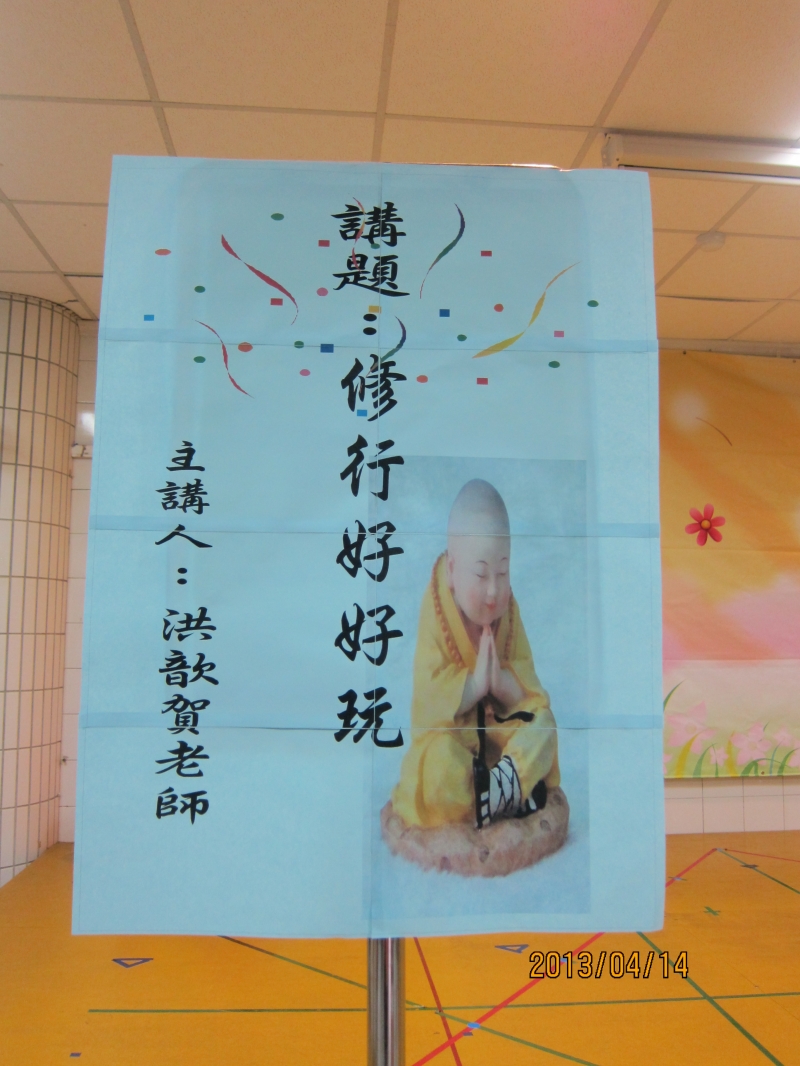 講題：修行好好玩
主講人：洪歆賀老師
2013/04/14